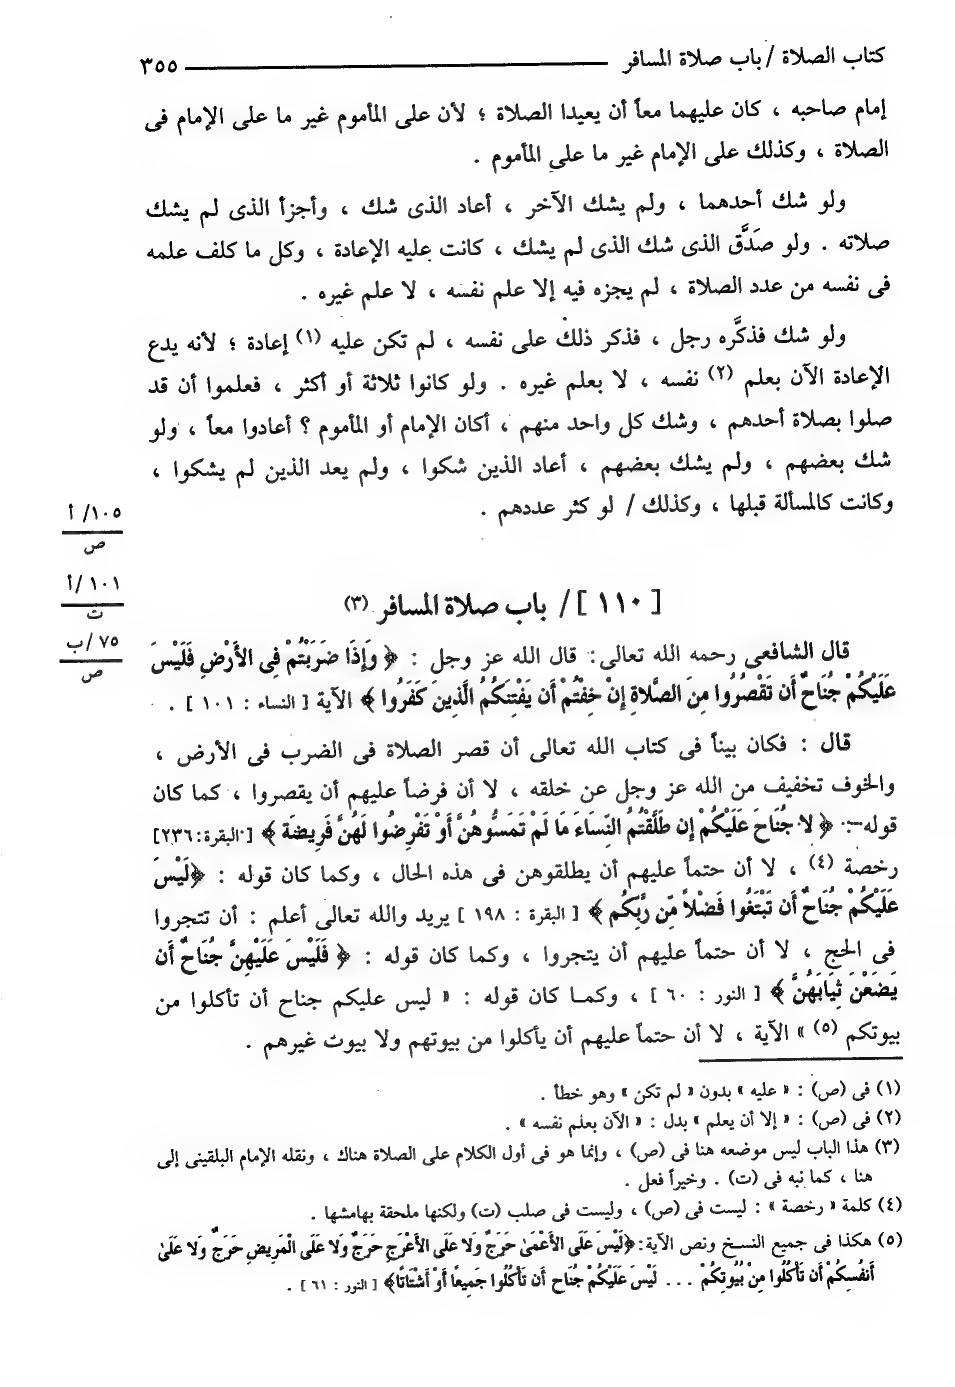 كتاب الصلاة / باب صلاة المسافر ــــــــــ ٣٥٥
إمام صاحبه ، كان عليهما معاً أن يعيدا الصلاة ؛ لأن على المأموم غير ما على الإمام فى
الصلاة ، وكذلك على الإمام غير ما على المأموم .
ولو شك أحدهما ، ولم يشك الآخر ، أعاد الذى شك ، وأجزأ الذى لم يشك
صلاته . ولو صَدَّق الذى شك الذى لم يشك ، كانت عليه الإعادة ، وكل ما كلف علمه
فى نفسه من عدد الصلاة ، لم يجزه فيه إلا علم نفسه ، لا علم غيره .
ولو شك فذكَّره رجل ، فذكر ذلك على نفسه ، لم تكن عليه (١) إعادة ؛ لأنه يدع
الإعادة الآن بعلم (٢) نفسه ، لا بعلم غيره . ولو كانوا ثلاثة أو أكثر ، فعلموا أن قد
صلوا بصلاة أحدهم ، وشك كل واحد منهم ، أكان الإمام أو المأموم ؟ أعادوا معاً ، ولو
شك بعضهم ، ولم يشك بعضهم ، أعاد الذين شكوا ، ولم يعد الذين لم يشكوا ،
وكانت كالمسألة قبلها ، وكذلك / لو كثر عددهم .
١٠٥/ أ
ص
[ ١١٠ ] / باب صلاة المسافر (٣)
١٠١ /أ
ت
٧٥ /ب
ص
قال الشافعى رحمه الله تعالى: قال الله عز وجل : ﴿ وَإِذَا ضَرَبْتُمْ فِى الأَرْضِ فَلَيْسَ
عَلَيْكُمْ جُنَاحٌ أَن تَقْصُرُوا مِنَ الصَّلاةِ إِنْ خِفْتُمْ أَن يَفْتِنَكُمُ الَّذِينَ كَفَرُوا ﴾ الآية [ النساء : ١٠١ ] .
قال : فكان بيناً فى كتاب الله تعالى أن قصر الصلاة فى الضرب فى الأرض ،
والخوف تخفيف من الله عز وجل عن خلقه ، لا أن فرضاً عليهم أن يقصروا ، كما كان
قوله : ﴿ لا جُنَاحَ عَلَيْكُمْ إِن طَلَّقْتُمُ النِّسَاءَ مَا لَمْ تَمَسُّوهُنَّ أَوْ تَفْرِضُوا لَهُنَّ فَرِيضَة ﴾ [البقرة: ٢٣٦]
رخصة (٤) ، لا أن حتماً عليهم أن يطلقوهن فى هذه الحال ، وكما كان قوله : ﴿لَيْسَ
عَلَيْكُمْ جُنَاحٌ أَن تَبْتَغُوا فَضْلاً مِّن رَّبِّكُم ﴾ [ البقرة : ١٩٨ ] يريد والله تعالى أعلم : أن تتجروا
فى الحج ، لا أن حتماً عليهم أن يتجروا ، وكما كان قوله : ﴿ فَلَيْسَ عَلَيْهِنَّ جُنَاحٌ أَن
يَضَعْنَ ثِيَابَهُنَّ ﴾ [ النور : ٦٠ ] ، وكما كان قوله : « ليس عليكم جناح أن تأكلوا من
بيوتكم (٥) » الآية ، لا أن حتماً عليهم أن يأكلوا من بيوتهم ولا بيوت غيرهم .
(١) فى (ص) : « عليه » بدون « لم تكن » وهو خطأ .
(٢) فى (ص) : « إلا أن يعلم » بدل : « الآن بعلم نفسه » .
(٣) هذا الباب ليس موضعه هنا فى (ص) ، وإنما هو فى أول الكلام على الصلاة هناك ، ونقله الإمام البلقينى إلى
هنا ، كما نبه فى (ت) . وخيراً فعل .
(٤) كلمة « رخصة » : ليست فى (ص) ، وليست فى صلب (ت) ولكنها ملحقة بهامشها .
(٥) هكذا فى جميع النسخ ونص الآية: ﴿لَيْسَ عَلَى الأَعْمَىٰ حَرَجٌ وَلا عَلَى الأَعْرَجِ حَرَجٌ وَلا عَلَى الْمَرِيضِ حَرَجٌ وَلا عَلَىٰ
أَنفُسِكُمْ أَن تَأْكُلُوا مِنْ بُيُوتِكُمْ ... لَيْسَ عَلَيْكُمْ جُنَاح أَن تَأْكُلُوا جَمِيعًا أَوْ أَشْتَاتًا﴾ [ النور : ٦١ ] .